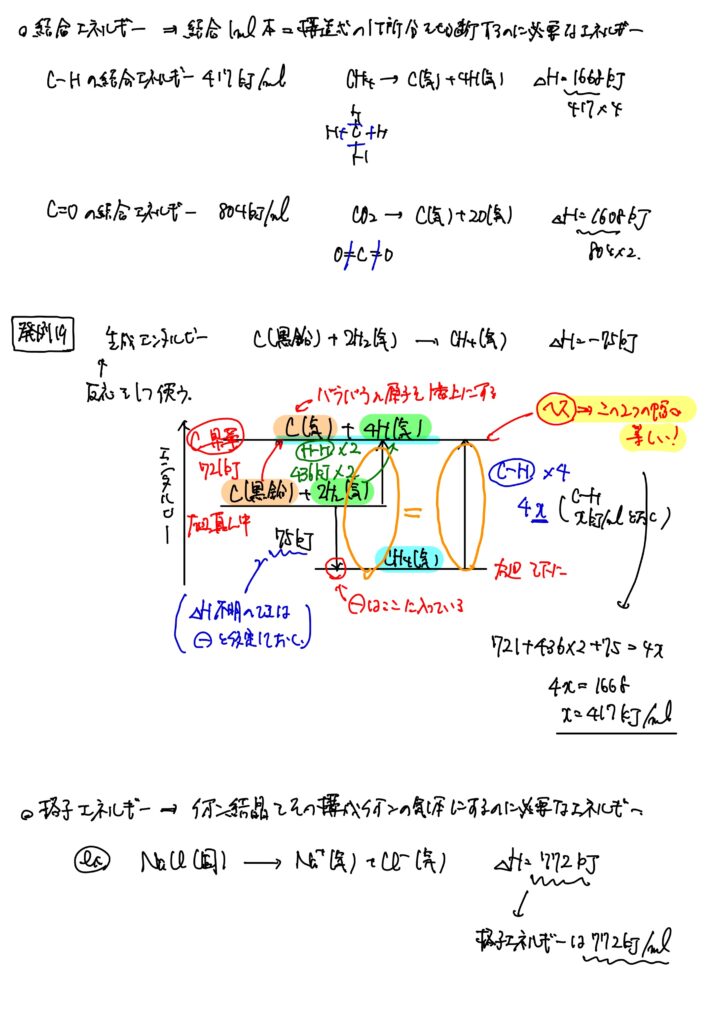 ○結合エネルギー ⇒ 結合1mol本=構造式の1ヶ所分を切断するのに必要なエネルギー
C-Hの結合エネルギー 417kJ/mol CH4 → C(気)+4H(気) ΔH=1668kJ
417×4
H
H C H
H
C=Oの結合エネルギー 804kJ/mol CO2 → C(気)+2O(気) ΔH=1608kJ
804×2.
O=C=O
発例19 生成エンタルピー C(黒鉛)+2H2(気) → CH4(気) ΔH=-75kJ
↑
反応で1つ使う.
バラバラの原子を1番上にする
C(気) + 4H(気)
ヘス ⇒ この2つの幅は
等しい!
C黒鉛
721kJ
H-H×2
436kJ×2
C-H ×4
4x (C-H
x kJ/molとおく)
エンタルピー
C(黒鉛)+2H2(気)
左辺真ん中
=
75kJ
CH4(気)
右辺 で下に
⊖はここに入っている
(ΔH不明のときは
⊖と仮定しておく.)
721+436×2+75=4x
4x=1668
x=417kJ/mol
○格子エネルギー → イオン結晶をその構成イオンの気体にするのに必要なエネルギー
ex. NaCl(固) → Na+(気)+Cl-(気) ΔH=772kJ
格子エネルギーは772kJ/mol